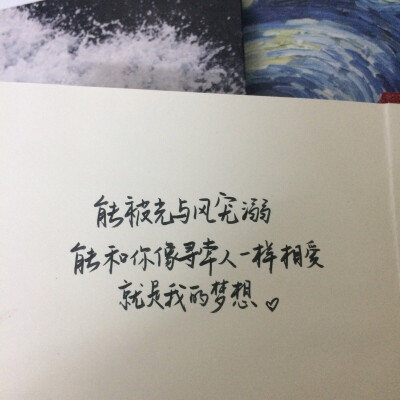 能被光与风宠溺
能和你像寻常人一样相爱
就是我的梦想♡